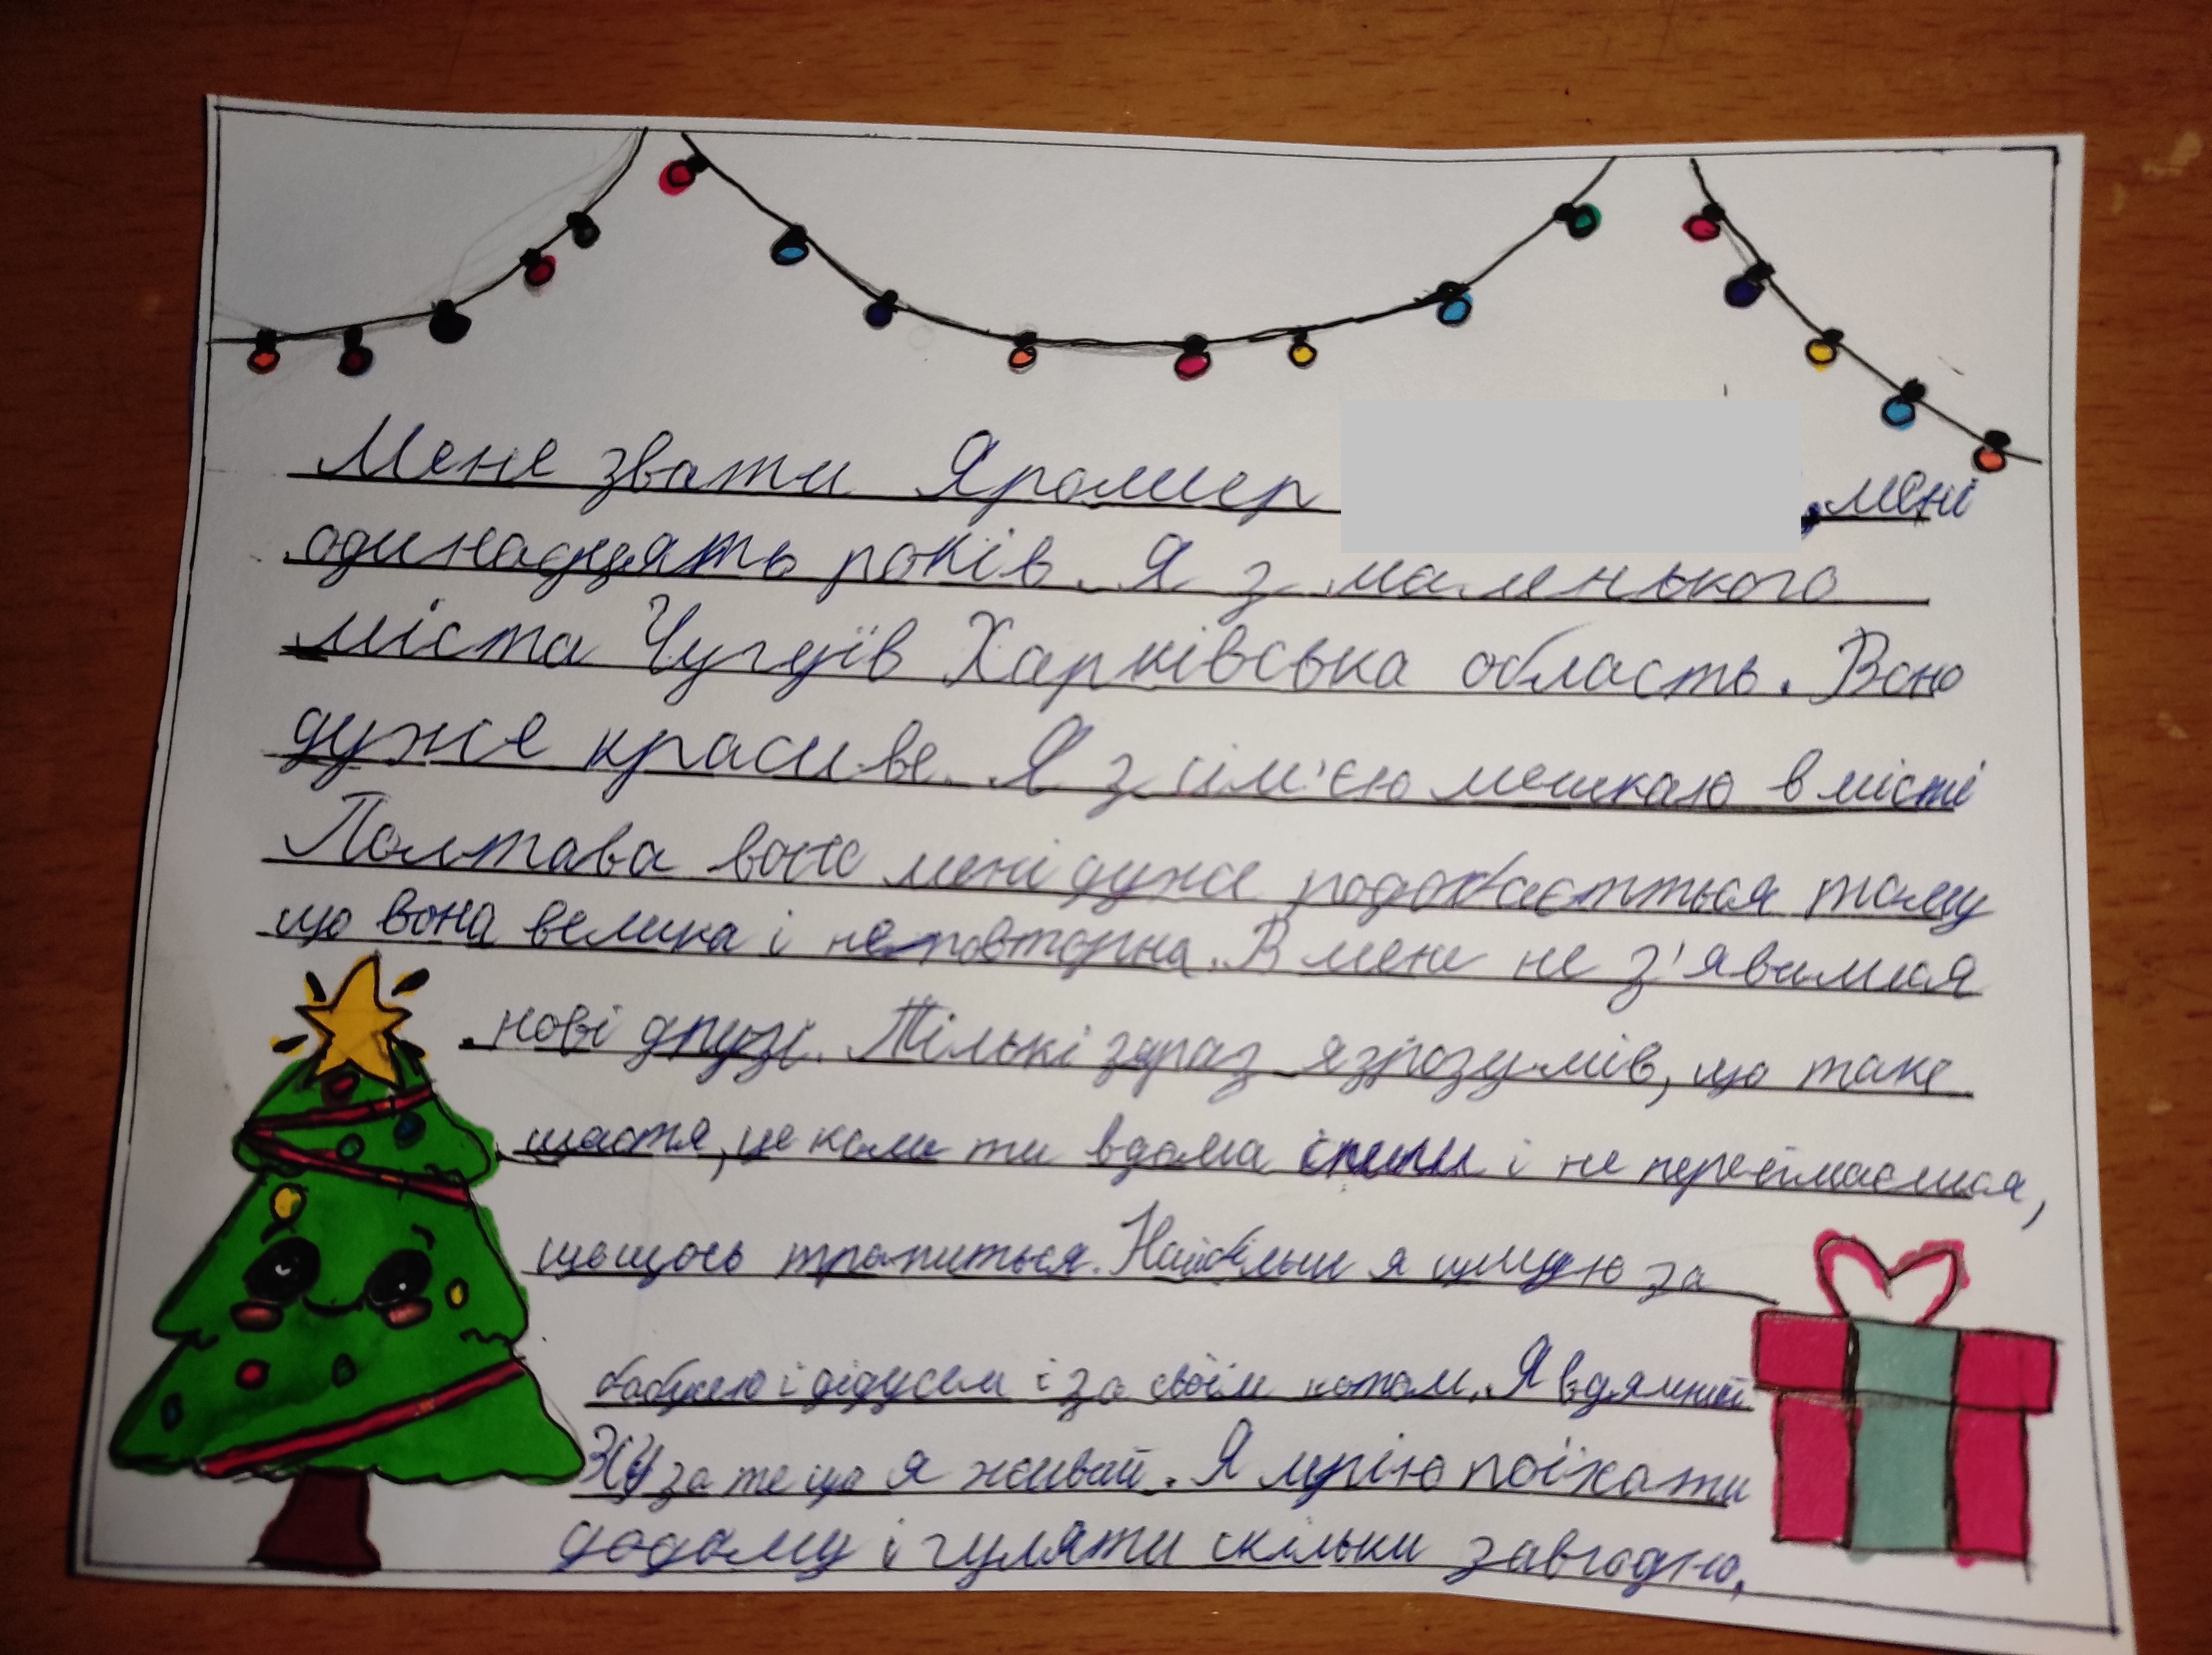 Мене звати Яромир , мені
одинадцять років. Я з маленького
міста Чугуїв Харківська область. Воно
дуже красиве. Я з сім'єю мешкаю в місті
Полтава воно мені дуже подобаєтться тому
що вона велика і неповторна. В мене не з'явилися
нові друзі. Тількі зараз я зрозумів, що таке
щастя, це коли ти вдома спиш і не переймаєшся,
що щось трапиться. Найбільш я сумую за
бабусею і дідусем і за своїм котом. Я вдячний
ЗСУ за те що я живий. Я мрію поїхати
додому і гуляти скільки завгодно.